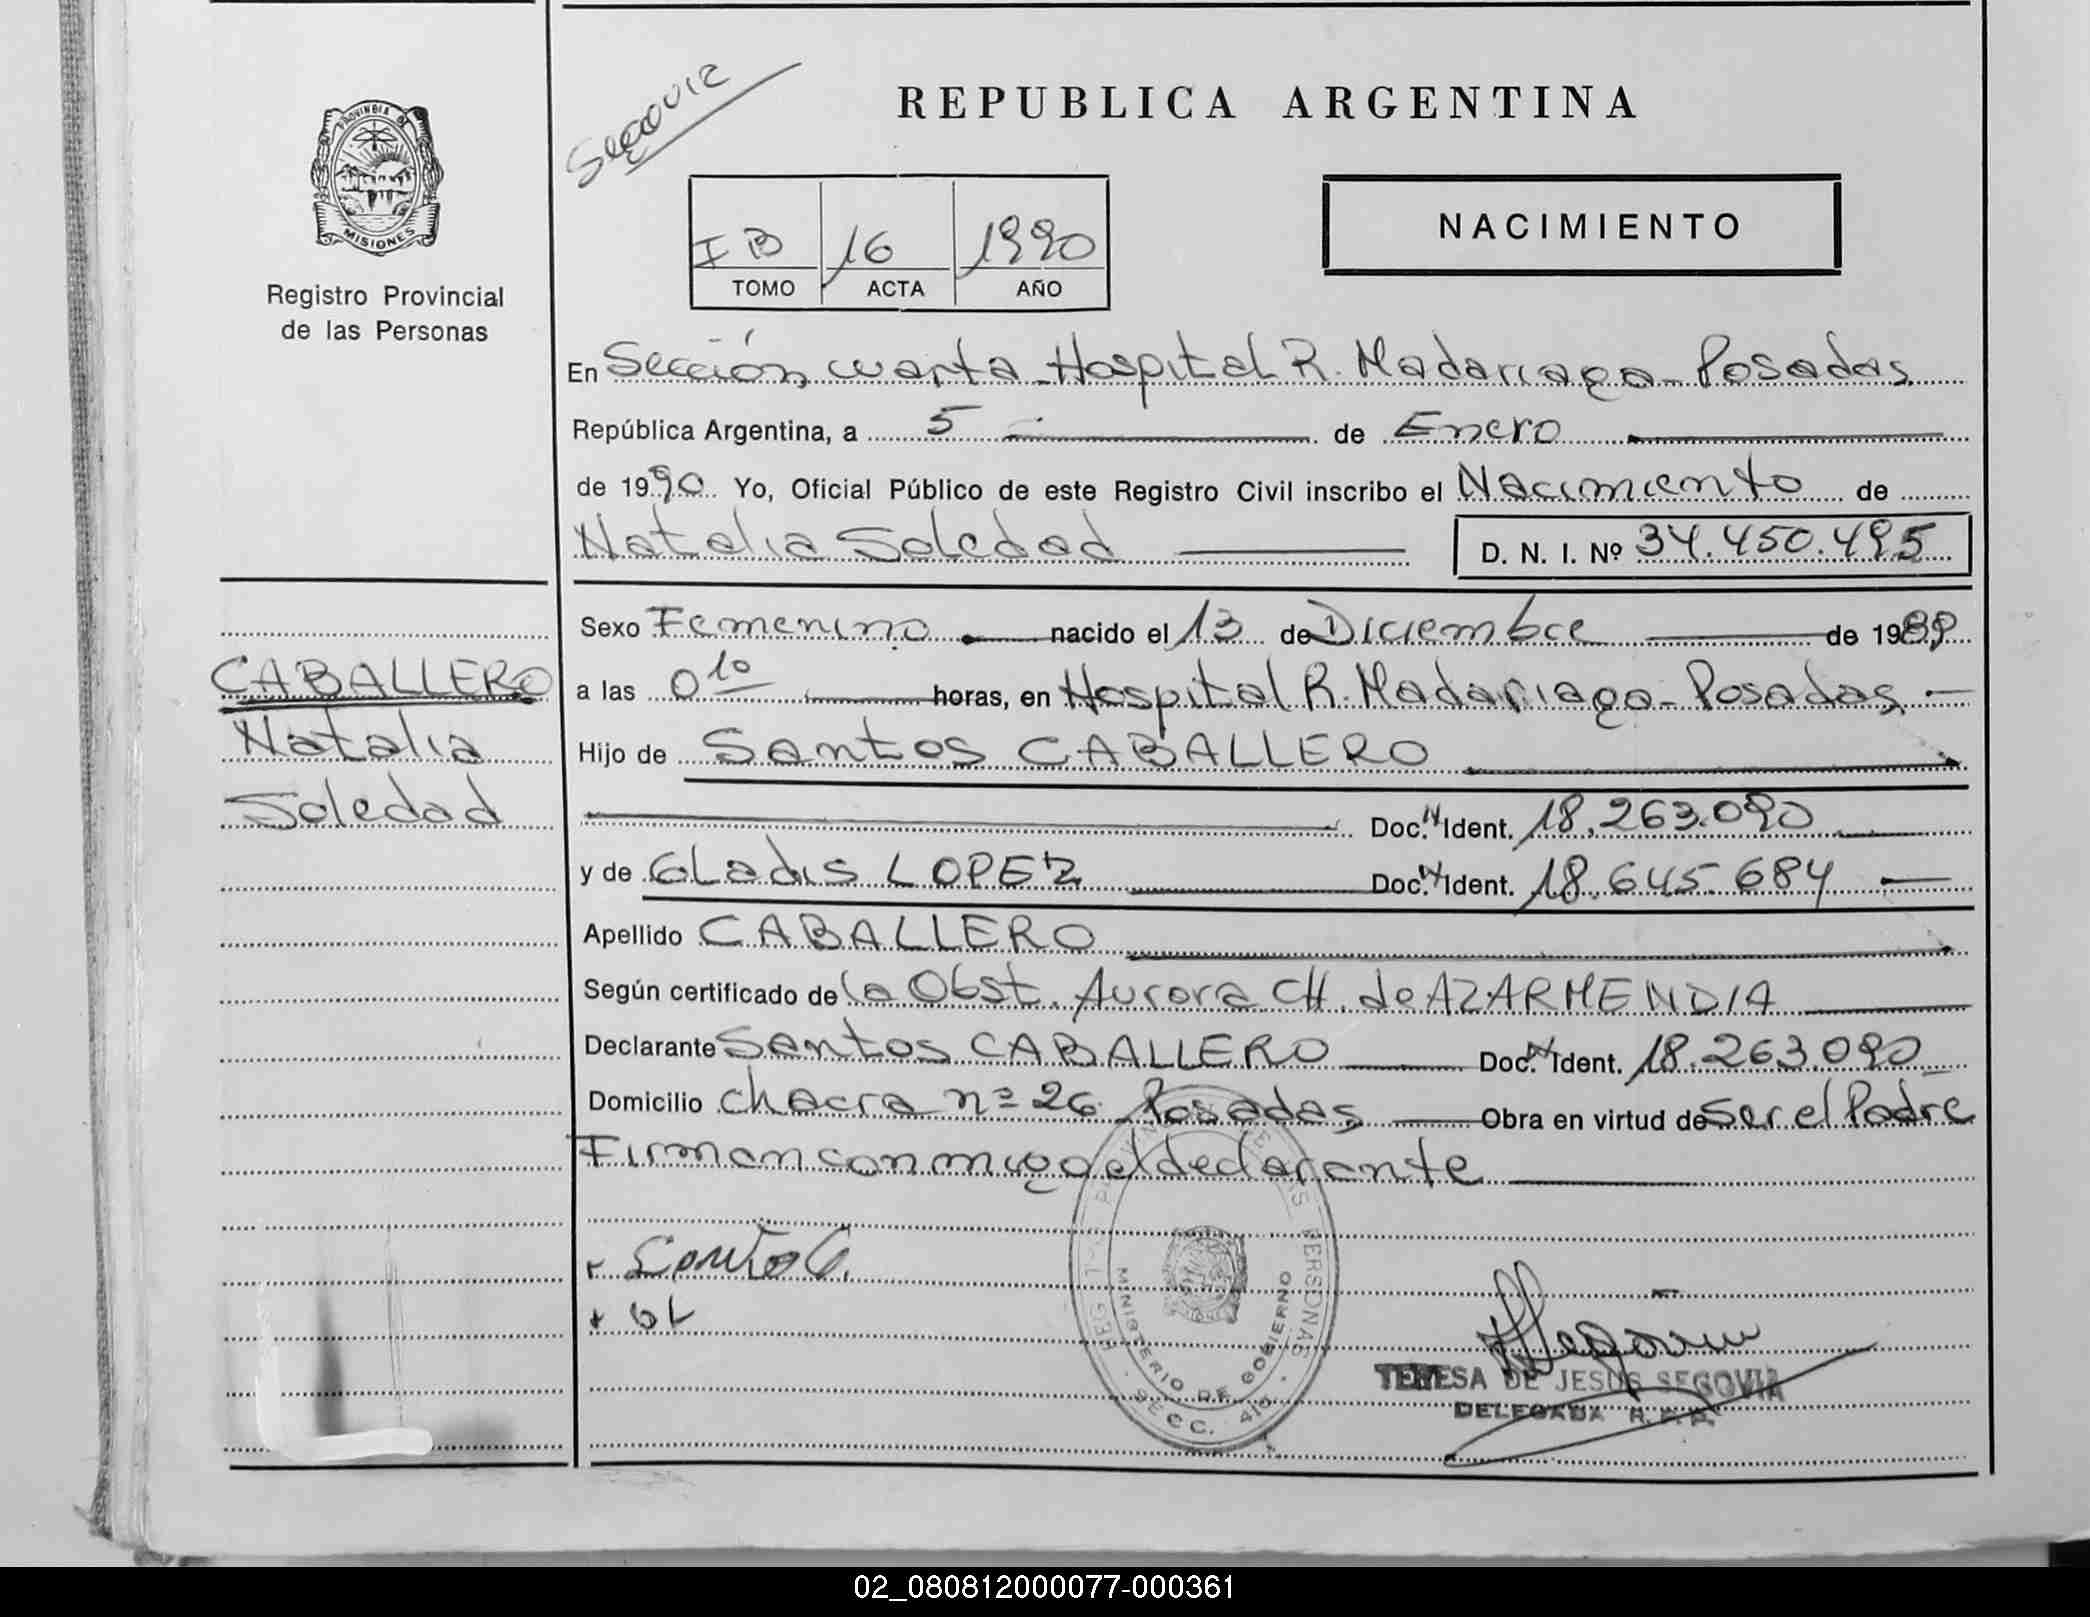 Segovia
REPUBLICA ARGENTINA
PROVINCIA DE
MISIONES
Registro Provincial
de las Personas
I B 16 1990
TOMO ACTA AÑO
NACIMIENTO
En Sección cuarta Hospital R. Madariaga - Posadas
República Argentina, a 5 de Enero
de 1990 Yo, Oficial Público de este Registro Civil inscribo el Nacimiento de
Natalia Soledad D. N. I. Nº 34.450.495
CABALLERO
Natalia
Soledad
Sexo Femenino nacido el 13 de Diciembre de 1989
a las 0 10 horas, en Hospital R. Madariaga - Posadas
Hijo de Santos CABALLERO
Doc. N Ident. 18.263.090
y de Gladis LOPEZ Doc. N Ident. 18.645.684
Apellido CABALLERO
Según certificado de la Obst. Aurora CH. de AZARMENDIA
Declarante Santos CABALLERO Doc. N Ident. 18.263.090
Domicilio Chacra nº 26 Posadas Obra en virtud de ser el Padre
Firman conmigo el declarante
Santo C.
GL
PERSONAS
MINISTERIO DE GOBIERNO
SECC. 410
Segovia
TERESA DE JESUS SEGOVIA
DELEGADA R. P. P.
02_080812000077-000361